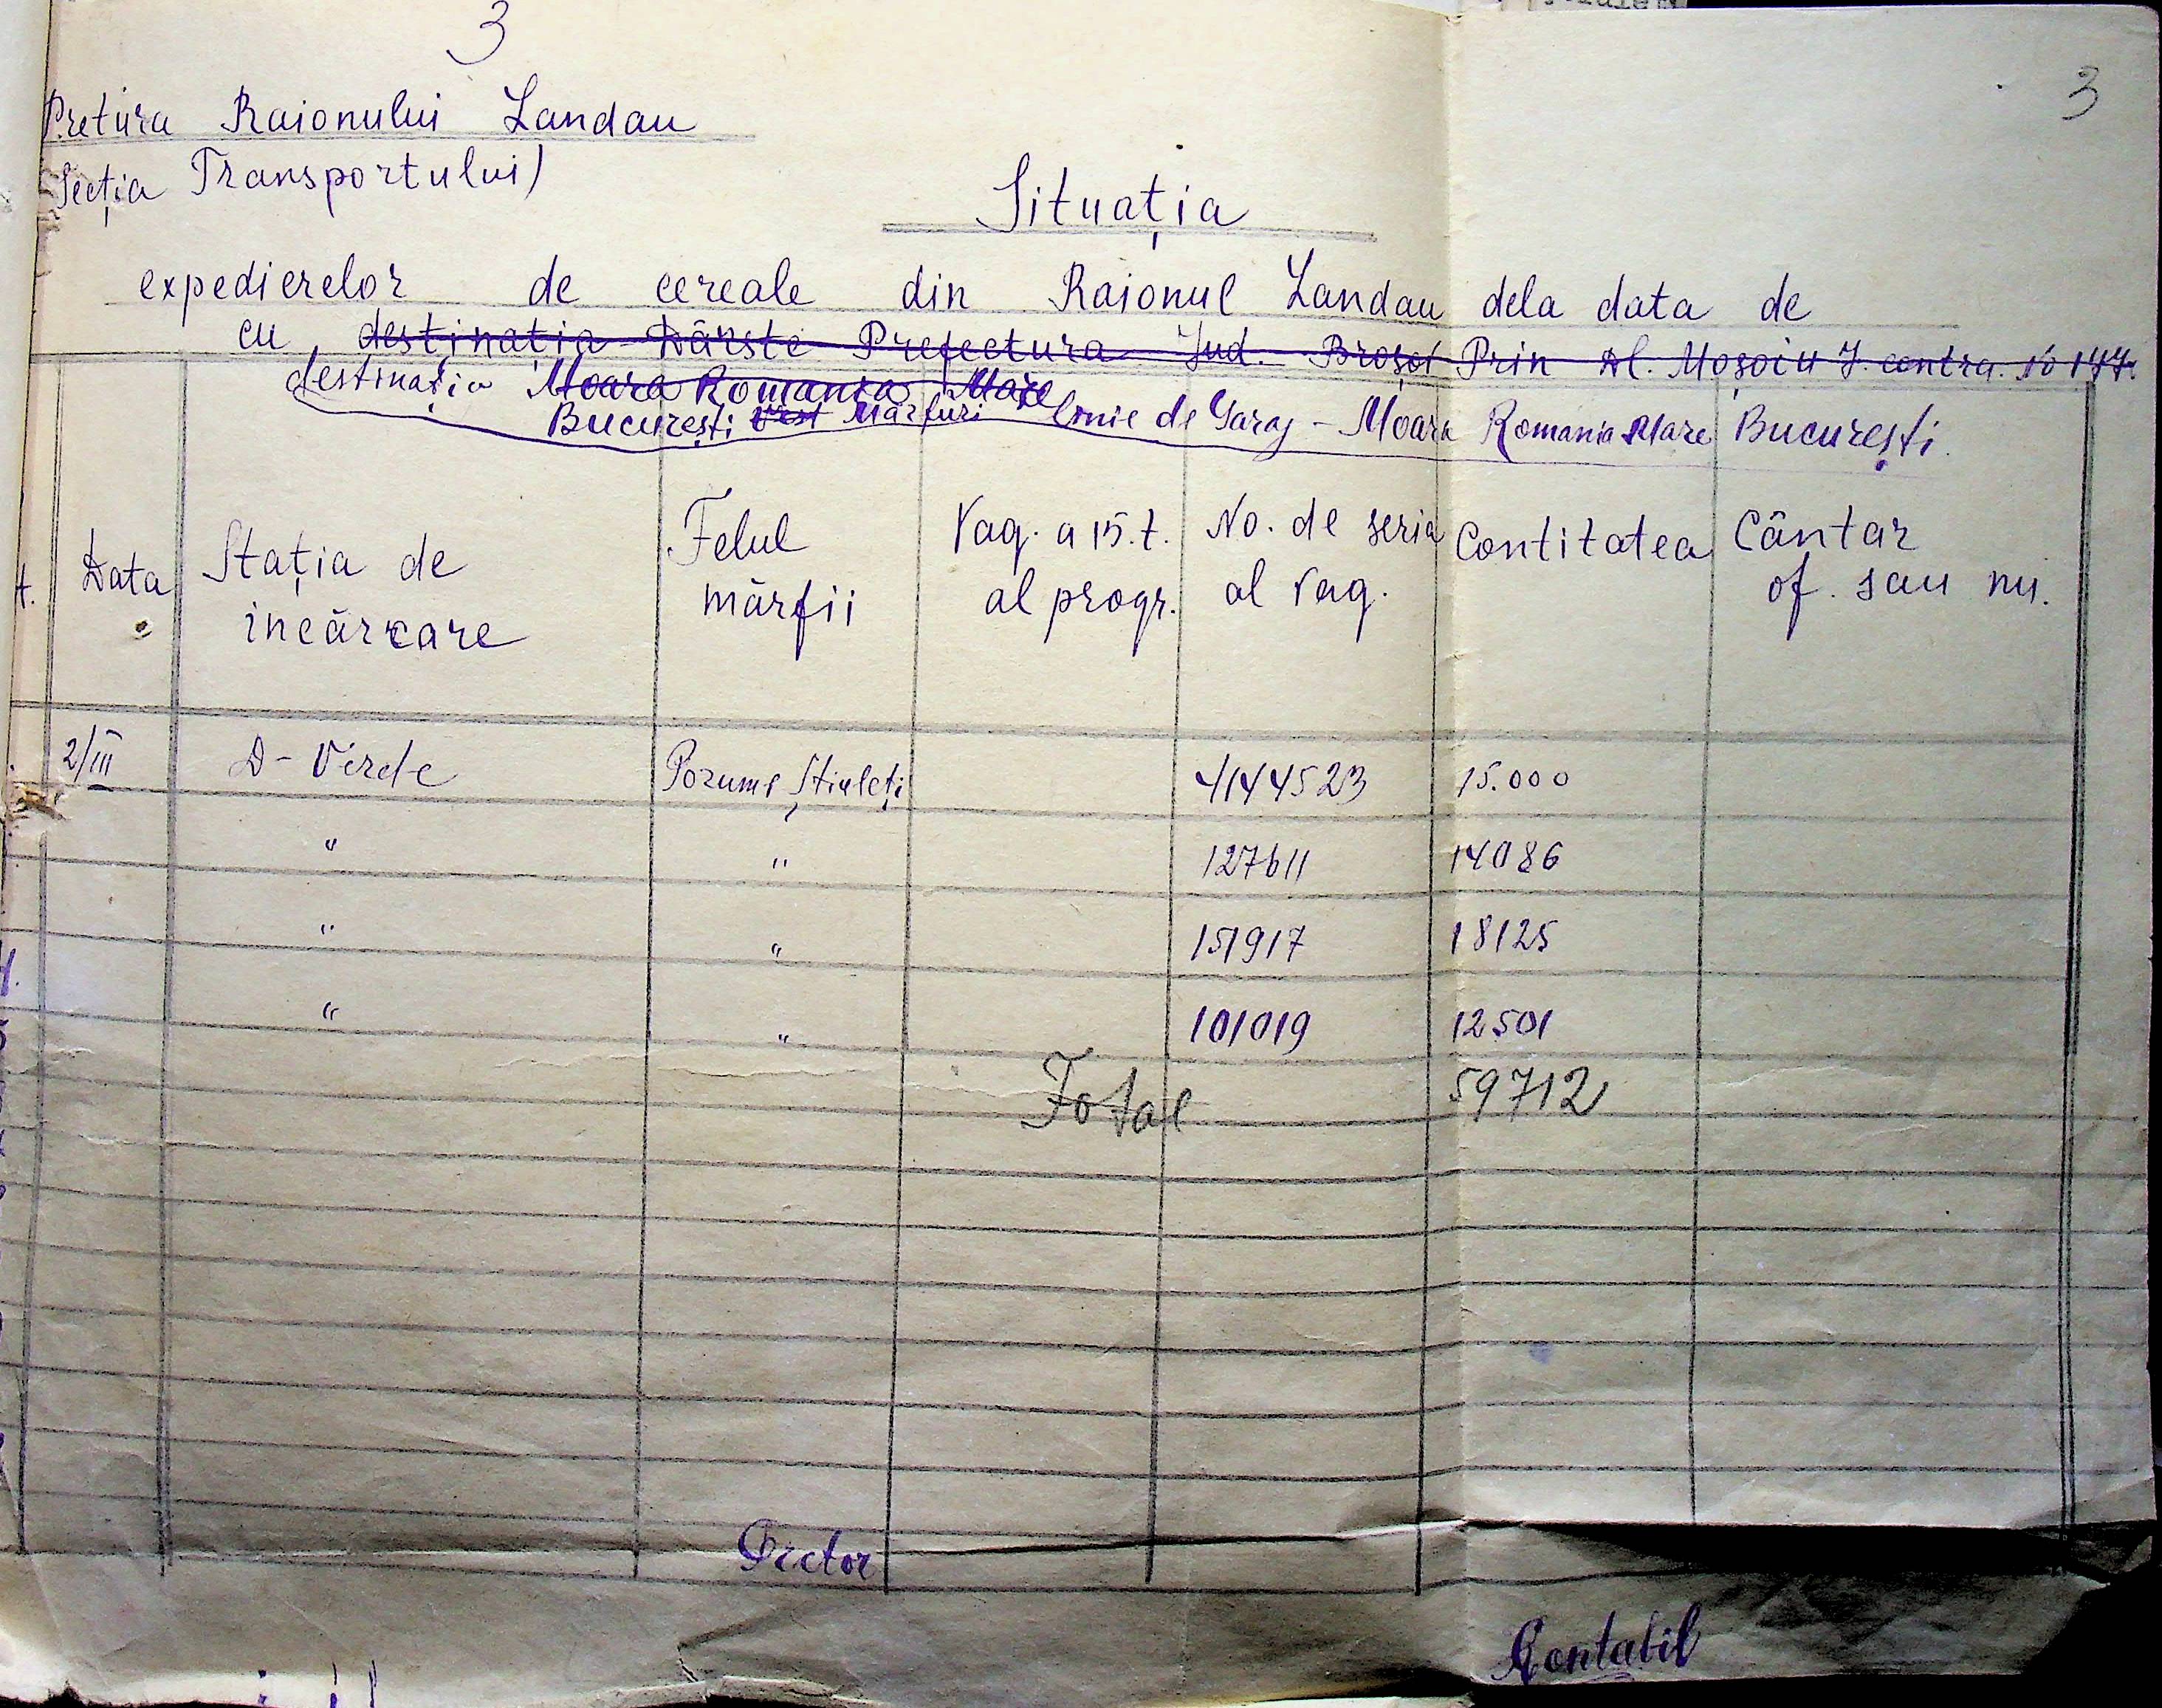 3
3
Pretura Raionului Landau
Secția Transportului)
Situația
expedierelor de cereale din Raionul Landau dela data de
cu destinatia Dârste Prefectura Jud. Brașov Prin Al. Moșoiu 7. contra. No 147.
destinația Moara Romania Mare
București Vest Mărfuri linie de Garaj - Moara Romania Mare București.
t. Data Stația de incărcare Felul mărfii Vag. a 15.t. al progr. No. de seria al vag. Contitatea Cântar of. sau nu.
2/III D-Verde Porumb Știuleți 4144523 15.000
" " 127611 14086
" " 151917 18125
" " 101019 12501
Total 59712
Pretor
Contabil